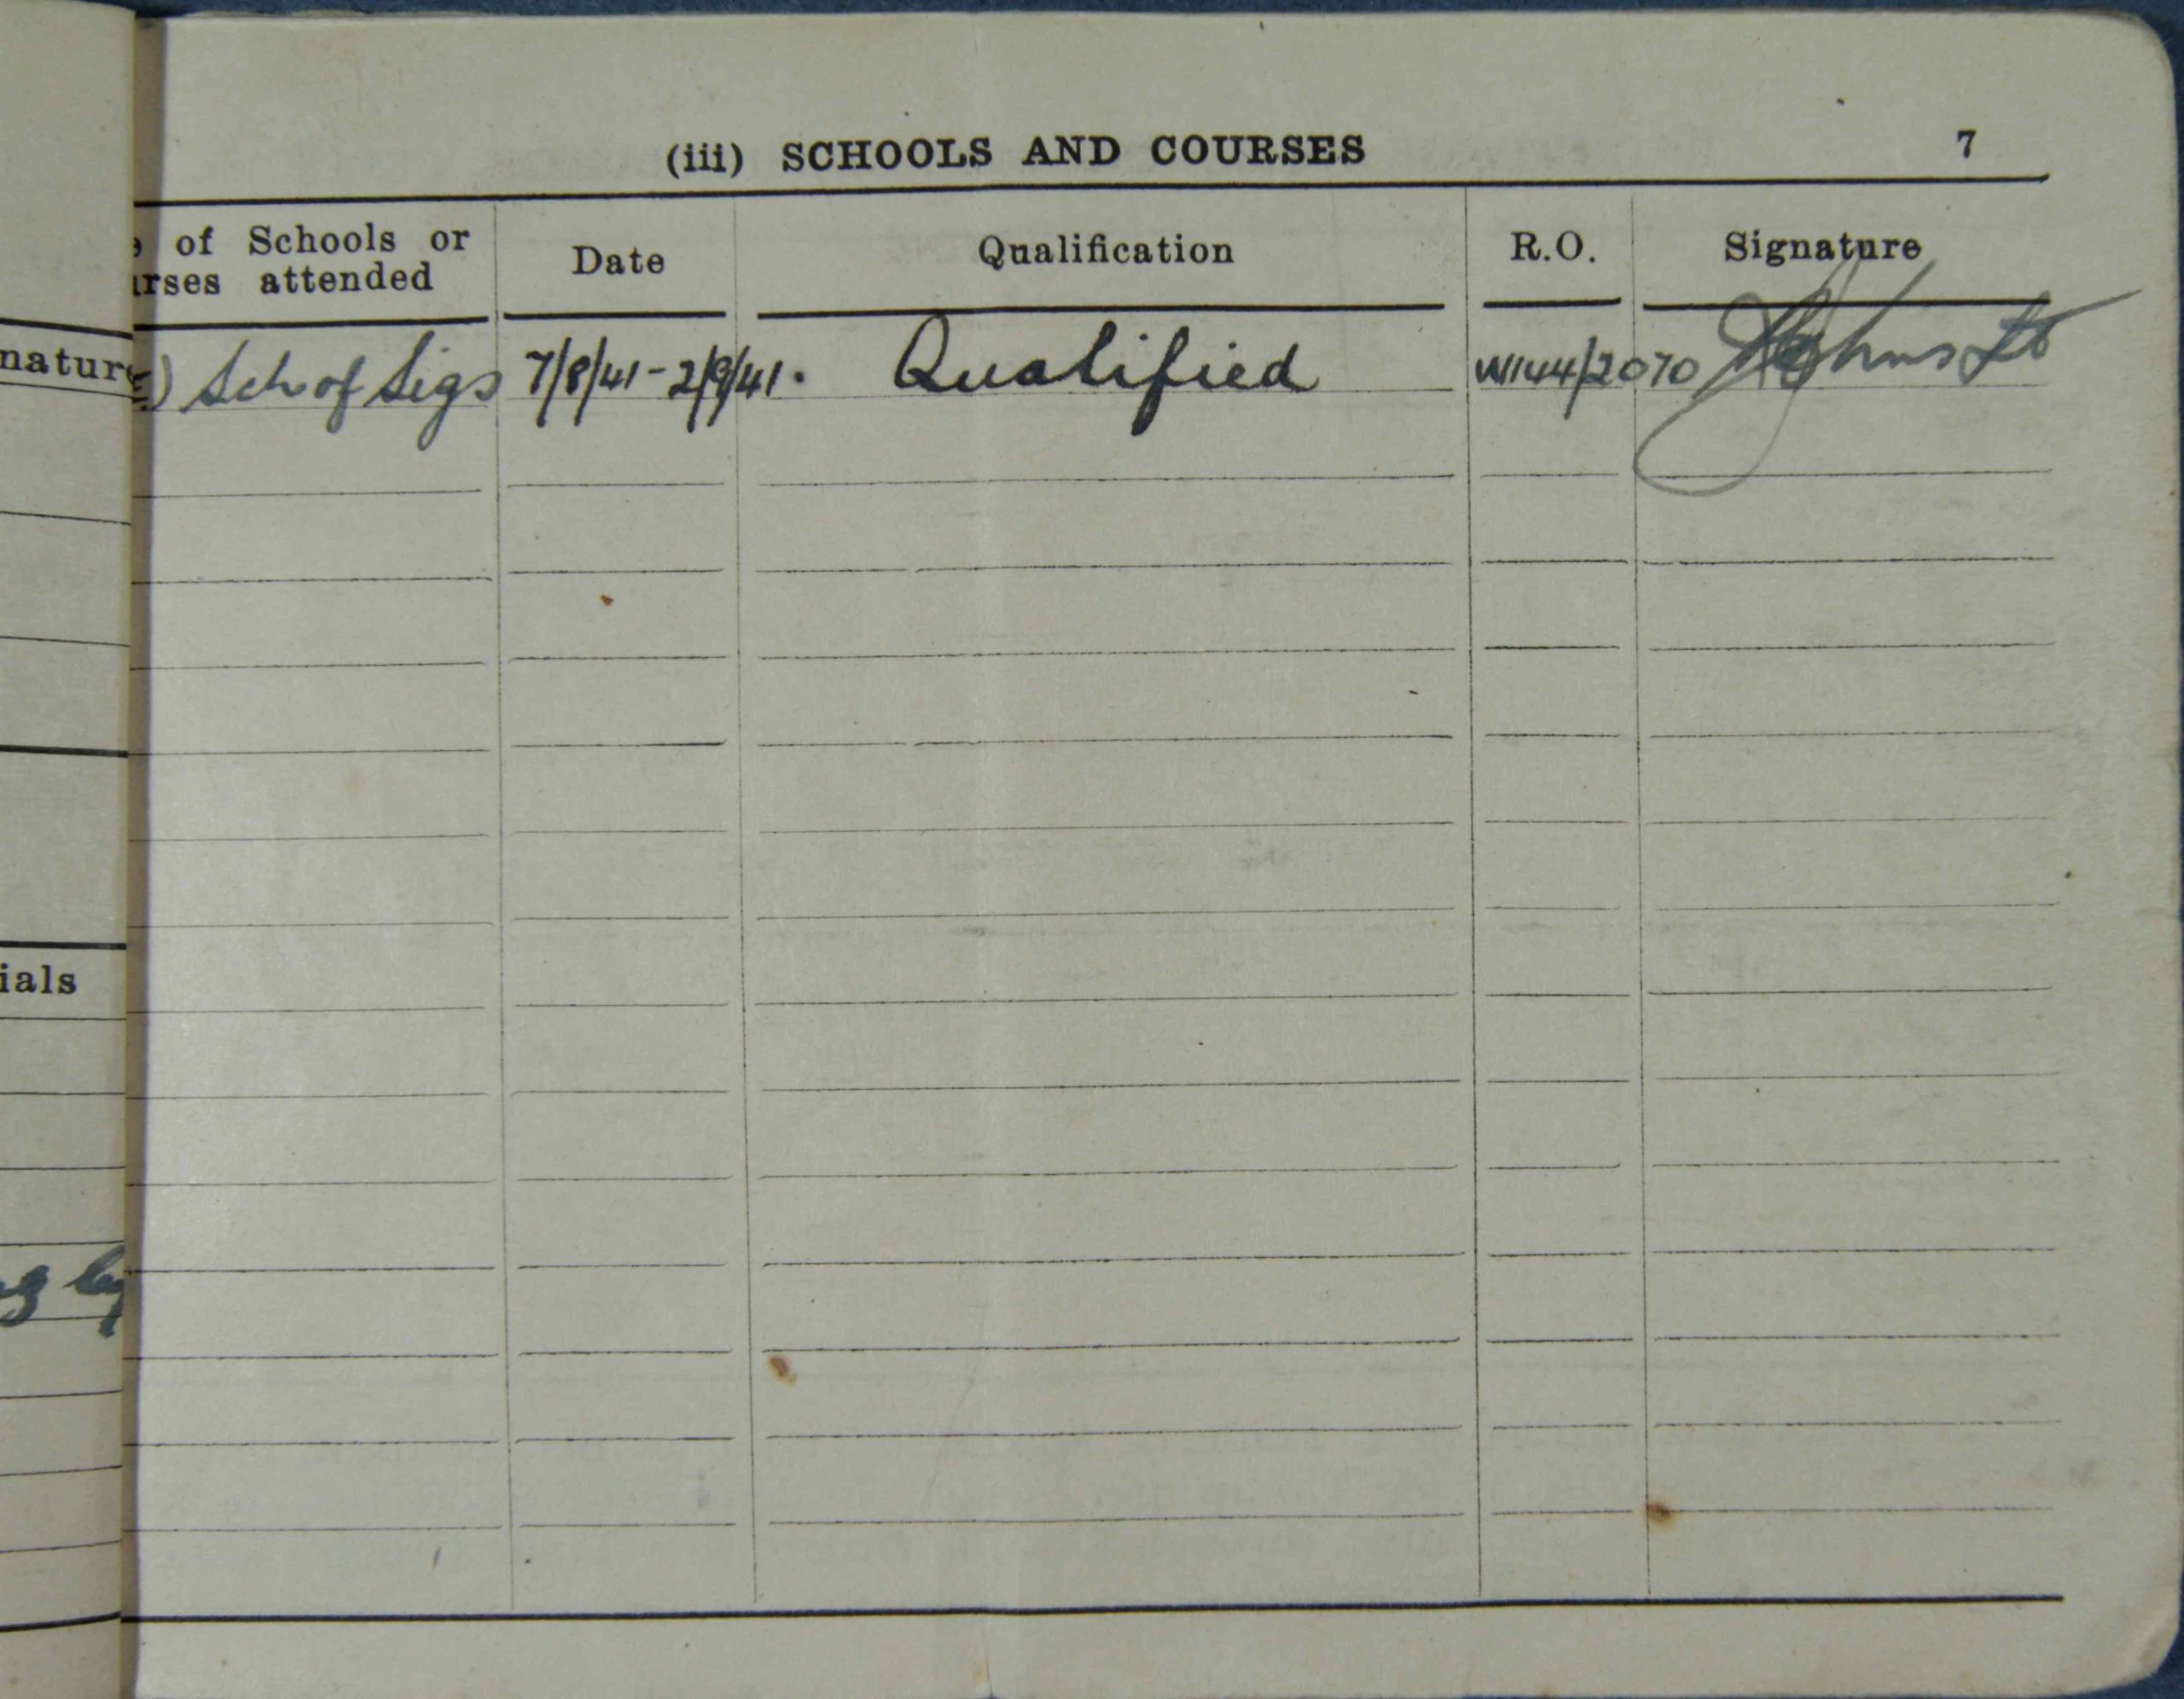 (iii) SCHOOLS AND COURSES 7
of Schools or
attended
Date Qualification R.O. Signature
Sch of Sigs 7/8/41 - 2/9/41. Qualified W144/2070 Lt